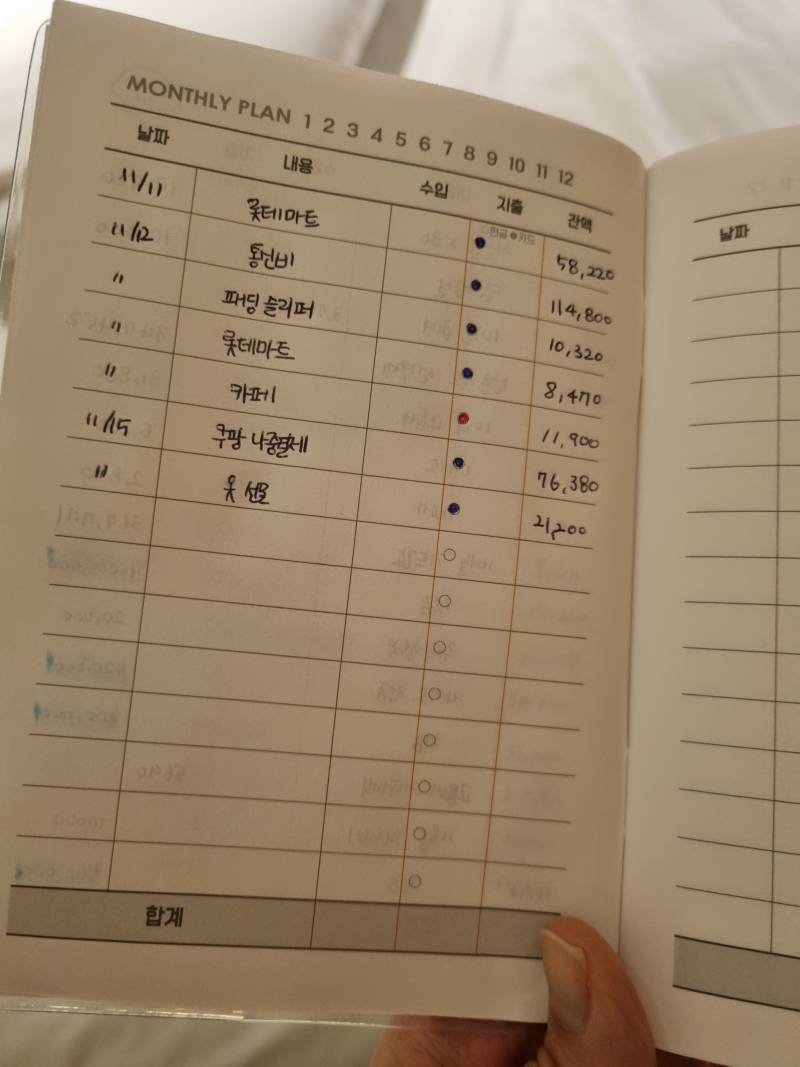 MONTHLY PLAN 1 2 3 4 5 6 7 8 9 10 11 12
날짜 내용 수입 지출 잔액
○현금 ●카드
11/11 롯데마트 58,220
11/12 통신비 114,800
〃 패딩 슬리퍼 10,320
〃 롯데마트 8,470
〃 카페 11,900
11/15 쿠팡 나중결제 76,380
〃 옷 선물 21,200
합계
날짜